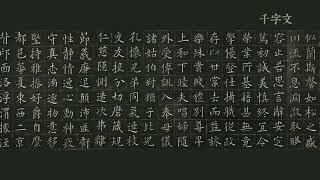 千字文
似蘭斯馨如松之盛
川流不息淵澄取映
容止若思言辭安定
篤初誠美慎終宜令
榮業所基籍甚無竟
學優登仕攝職從政
存以甘棠去而益詠
樂殊貴賤禮別尊卑
上和下睦夫唱婦隨
外受傅訓入奉母儀
諸姑伯叔猶子比兒
孔懷兄弟同氣連枝
交友投分切磨箴規
仁慈隱惻造次弗離
節義廉退顛沛匪虧
性靜情逸心動神疲
守真志滿逐物意移
堅持雅操好爵自縻
都邑華夏東西二京
背邙面洛浮渭據涇